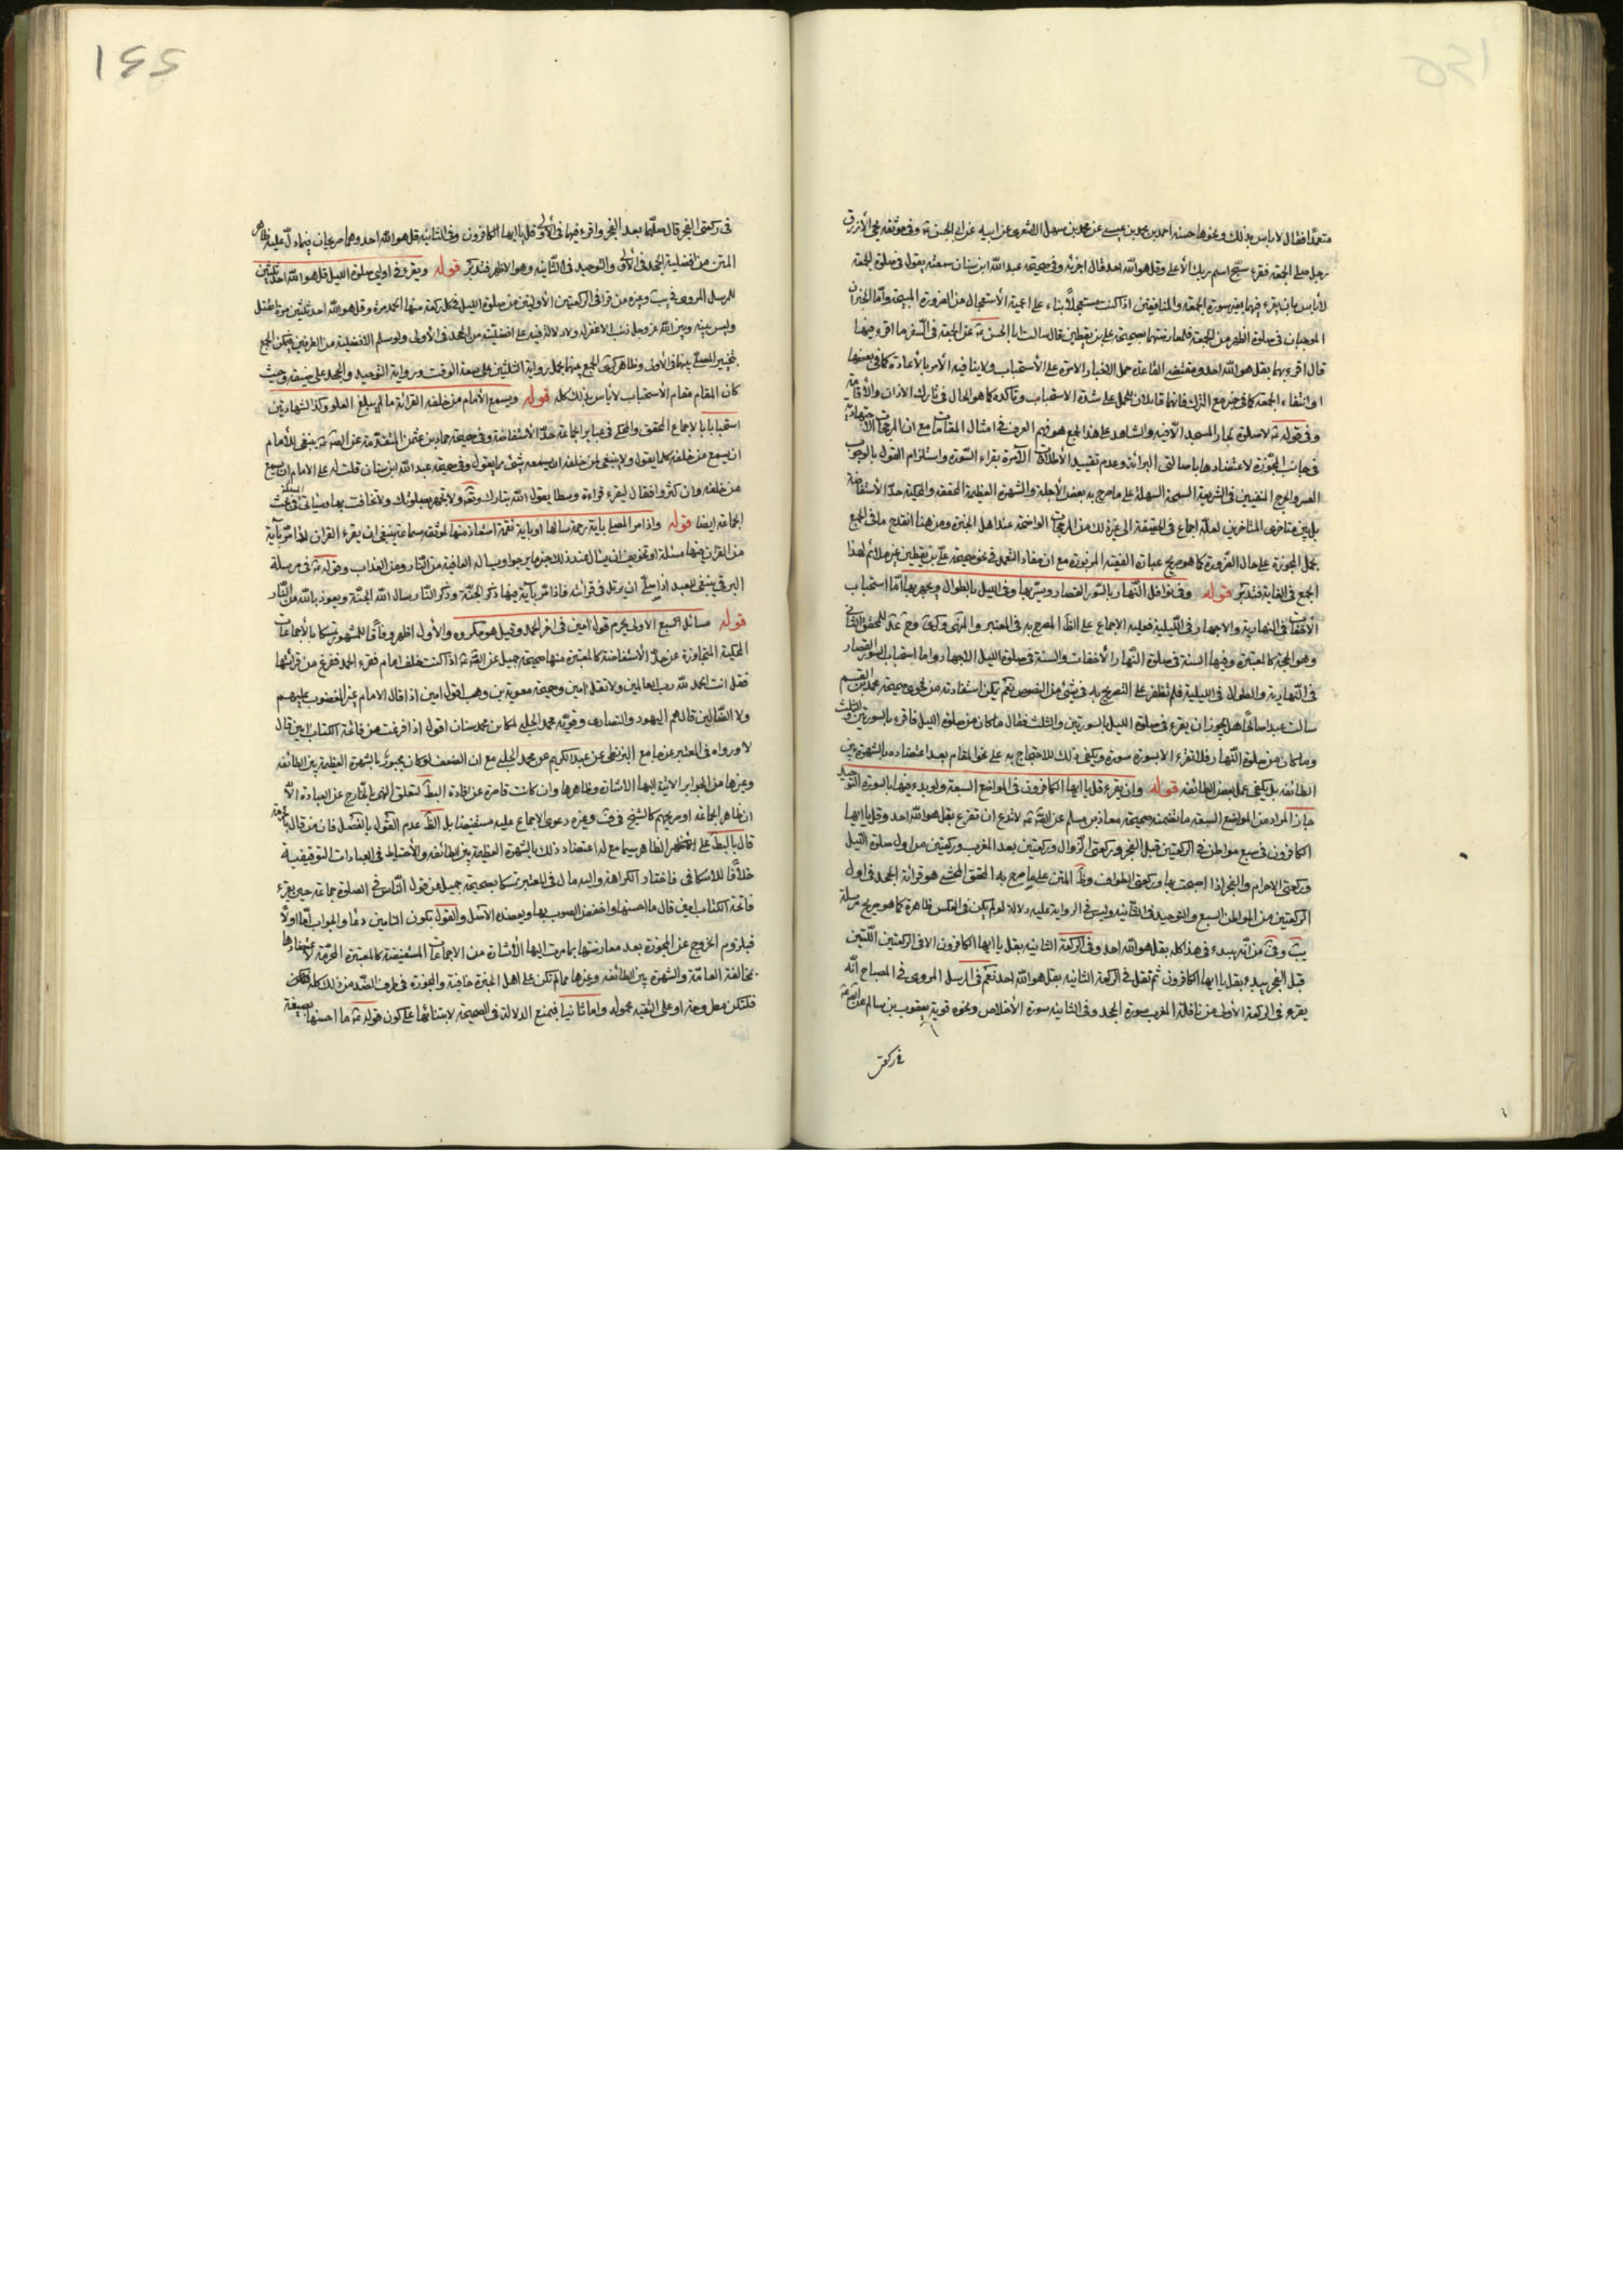 متعمدا فقال لا باس بذلك ونحوها حسنة احمد بن محمد بن عيسى عن محمد بن سهل الاشعرى عن ابيه عن ابى الحسن عه وفى موثقة يحيى الأزرق
رجل صلى الجمعة فقرء سبح اسم ربك الأعلى وقل هو الله احد قال اجزئه وفى صحيحة عبد الله ابن سنان سمعته يقول فى صلوة الجمعة
لا باس بان يقرء فيها بغير سورة الجمعة والمنافقين اذا كنت مستعجلا بناء على اعمية الأستعجال من الضرورة المبيحة واما الخبران
الموجبان فى صلوة الظهر من الجمعة فلمعارضتهما بصحيحة على بن يقطين قال سالت ابا الحسن عه عن الجمعة فى السفر ما اقرء فيها
قال اقرء بهما بقل هو الله احد ومقتضى القاعدة حمل الاخبار الامرة على الأستحباب ولا ينافيه الأمر بالأعادة كما فى بعضها
او انتفاء الجمعة كما فى خبر مع الترك فانهما قابلان للحمل على شدة الاستحباب وتاكده كما هو الحال فى تارك الاذان والأقامة
وفى قوله عه لا صلوة لجار المسجد الا فيه والشاهد على هذا الجمع هو فهم العرف فى امثال المقامات مع ان المرجحات الاجتهادية
فى جانب المجوزة لاعتضادها باصالتى البرائة وعدم تقييد الأطلاقات الآمرة بقراءة السورة واستلزام القول بالوجوب
العسر والحرج المنفيين فى الشريعة السمحة السهلة على ما صرح به بعض الأجلة والشهرة العظيمة المحققة والمحكية حد الأستفاضة
بل بين متاخرى المتاخرين لعله اجماع فى الحقيقة الى غير ذلك من المرجحات الواضحة عند اهل الخبرة ومن هنا انقدح ما فى الجمع
بحمل المجوزة على حال الضرورة كما هو صريح عبارة الفقيه المزبورة مع ان مفاد التعمد فى نحو صحيحة على بن يقطين غير ملائم لهذا
الجمع فى الغاية فتدبر قوله وفى نوافل النهار بالسور القصار ويسر بها وفى الليل بالطوال ويجهر بها اما استحباب
الأخفات فى النهارية والاجهار فى الليلية فعليه الاجماع على الظ المصرح به فى المعتبر والمنتهى وكرى وعه للمحقق الثانى
وهو الحجة كالمعتبرة وفيها السنة فى صلوة النهار الأخفات والسنة فى صلوة الليل الاجهار واما استحباب السور القصار
فى النهارية والطوال فى الليلية فلم نظفر على التصريح به فى شئ من النصوص نعم يمكن استفادته من فحوى صحيحة محمد بن القسم
سالت عبدا صالحا هل يجوز ان يقرء فى صلوة الليل بالسورتين والثلث فقال ما كان من صلوة الليل فاقرء بالسورتين والثلث
وما كان من صلوة النهار فلا تقرء الا بسورة سورة ويكفى ذلك للاحتجاج به على نحو المقام بعد اعتضاده بالشهرة بين
الطائفة بل يكفى عمل بعض الطائفة قوله وان يقرء قل يا ايها الكافرون فى المواضع السبعة ولو بدء فيها بالسورة التوحيد
جاز المراد من المواضع السبعة ما تضمنه صحيحة معاذ بن مسلم عن الص عه لا تدع ان تقرء بقل هو الله احد وقل يا ايها
الكافرون فى سبع مواطن فى الركعتين قبل الفجر وركعتى الزوال وركعتين بعد المغرب وركعتين من اول صلوة الليل
وركعتى الاحرام والفجر اذا اصبحت بها وركعتى الطواف وظ المتن على ما صرح به المحقق المحشى هو قرائة الجحد فى اول
الركعتين من المواطن السبع والتوحيد فى الثانية وليس فى الرواية عليه دلالة لو لم يكن فى العكس ظاهرة كما هو صريح مرسلة
يب وفى من انه يبدء فى هذا كله بقل هو الله احد وفى الركعة الثانية بقل يا ايها الكافرون الا فى الركعتين اللتين
قبل الفجر يبدء بقل يا ايها الكافرون ثم تقل فى الركعة الثانية بقل هو الله احد نعم فى المرسل المروى فى المصباح انه
يقرء فى الركعة الأولى من نافلة المغرب سورة الجحد وفى الثانية سورة الأخلاص ونحوه قوية يعقوب بن سالم عن الص عه
فى ركعتى
فى ركعتى الفجر قال صلهما بعد الفجر واقرء فيهما فى الأولى قل يا ايها الكافرون وفى الثانية قل هو الله احد وهما صريحان فيما دل عليه ظاهر
المتن من افضلية الجحد فى الأولى والتوحيد فى الثانية وهو الاظهر فتدبر قوله ويقرء فى اولى صلوة الليل قل هو الله احد ثلثين
للمرسل المروى فى يب وغيره من قرا فى الركعتين الأوليتين من صلوة الليل فى كل ركعة منها الحمد مرة وقل هو الله احد ثلثين مرة انفتل
وليس بينه وبين الله عز وجل ذنب الا غفر له ولا دلالة فيه على افضليته من الجحد فى الأولى ولو سلم الافضلية من الطرفين فيمكن الجمع
بتخيير المصلى بينهما فى الأولى وظاهر كرى الجمع بينهما بحمل رواية الثلثين على سعة الوقت ورواية التوحيد والجحد على ضيقه وحيث
كان المقام مقام الأستحباب لا باس بذلك كله قوله ويسمع الأمام من خلفه القرائة ما لم يبلغ العلو وكذا الشهادتين
استحبابا بالاجماع المحقق والمحكى فى عباير الجماعة حد الأستفاضة وفى صحيحة حماد بن عثمن المتقدمة عن الص عه ينبغى للأمام
ان يسمع من خلفه كلما يقول ولا ينبغى لمن خلفه ان يسمعه شئ مما يقول وفى صحيحة عبد الله ابن سنان قلت له على الامام ان يسمع
من خلفه وان كثروا فقال ليقرء قراءة وسطا يقول الله تبارك وتع ولا تجهر بصلوتك ولا تخافت بها وسياتى المسئلة فى بحث
الجماعة ايضا قوله واذا مر المصلى باية رحمة سالها او باية نقمة استعاذ منها لموثقة سماعة ينبغى لمن يقرء القران اذا مر بآية
من القران فيها مسئلة او تخويف ان يسال عند ذلك خير ما يرجو او يساله العافية من النار ومن العذاب وقوله عه فى مرسلة
البرقى ينبغى للعبد اذا صلى ان يرتل فى قرائته فاذا مر بآية فيها ذكر الجنة وذكر النار سال الله الجنة ويعوذ بالله من النار
قوله مسائل السبع الاولى يحرم قول امين فى اخر الحمد وقيل هو مكروه والأول اظهر وفاقا للمشهور تمسكا بالأجماعات
المحكية المتجاوزة عن حد الأستفاضة كالمعتبرة منها صحيحة جميل عن الص عه اذا كنت خلف امام فقرء الحمد ففرغ من قرائتها
فقل انت الحمد لله رب العالمين ولا تقل امين وصحيحة معوية بن وهب اقول امين اذا قال الامام غير المغضوب عليهم
ولا الضالين قال هم اليهود والنصارى وقوية محمد الحلبى لمكان محمد سنان اقول اذا فرغت من فاتحة الكتاب امين قال
لا ورواه فى المعتبر عن جامع البزنطى عن عبد الكريم عن محمد الحلبى مع ان الضعف لو كان مجبور بالشهرة العظيمة بين الطائفة
وغيرها من الجوابر الاتية اليها الاشارة وظاهرها وان كانت قاصرة عن افادة البط لتعلق النهى بالخارج عن العبادة الا
ان ظاهر الجماعة او صريحهم كالشيخ فى ف وغيره دعوى الاجماع عليه مستفيضا بل الظ عدم القول بالفصل فان من قال بالحرمة
قال بالبطلان على الظاهر سيما مع اعتضاد ذلك بالشهرة العظيمة بين الطائفة والأحتياط فى العبادات التوقيفية
خلافا للاسكافى فاختار الكراهة واليه مال فى المعتبر تمسكا بصحيحة جميل عن قول الناس فى الصلوة جماعة حين يقرء
فاتحة الكتاب امين قال ما احسنها واخفض الصوت بها ويعضده الأصل والقول بكون التامين دعا والجواب اما اولا
فبلزوم الخروج عن المجوزة بعد معارضتها بما مرت اليها الأشارة من الاجماعات المستفيضة كالمعتبرة المحرمة لاعتضادها
بمخالفة العامة والشهرة بين الطائفة وغيرها مما لم تكن على اهل الخبرة خافية والمجوزة فى طرف الضد من ذلك كله
فلتكن مطروحة او على التقية محمولة واما ثانيا فبمنع الدلالة فى الصحيحة لابتنائها على كون قوله عه ما احسنها بصيغة